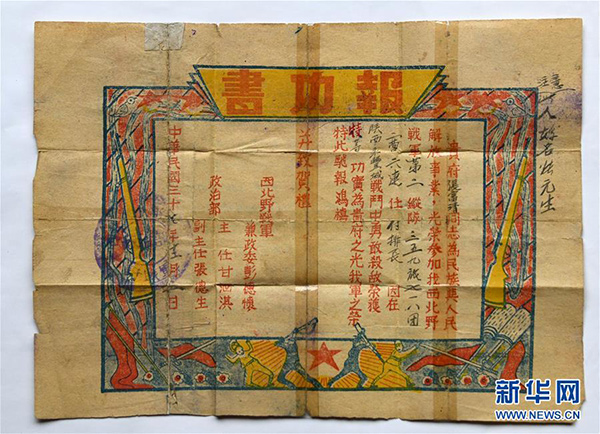 報功書
貴府張富清同志為民族與人民
解放事業,光榮參加我西北野
戰軍第二縱隊三五九旅七一八團
二營六連任付排長因在
戰鬥中勇敢殺敵榮獲
特等功實為貴府之光我軍之榮
特此馳報鴻禧
並致賀禮
西北野戰軍
兼政委彭德懷
政治部
主任甘泗淇
副主任張德生
中華民國三十七年十二月 日
注意
新华网
WWW.NEWS.CN